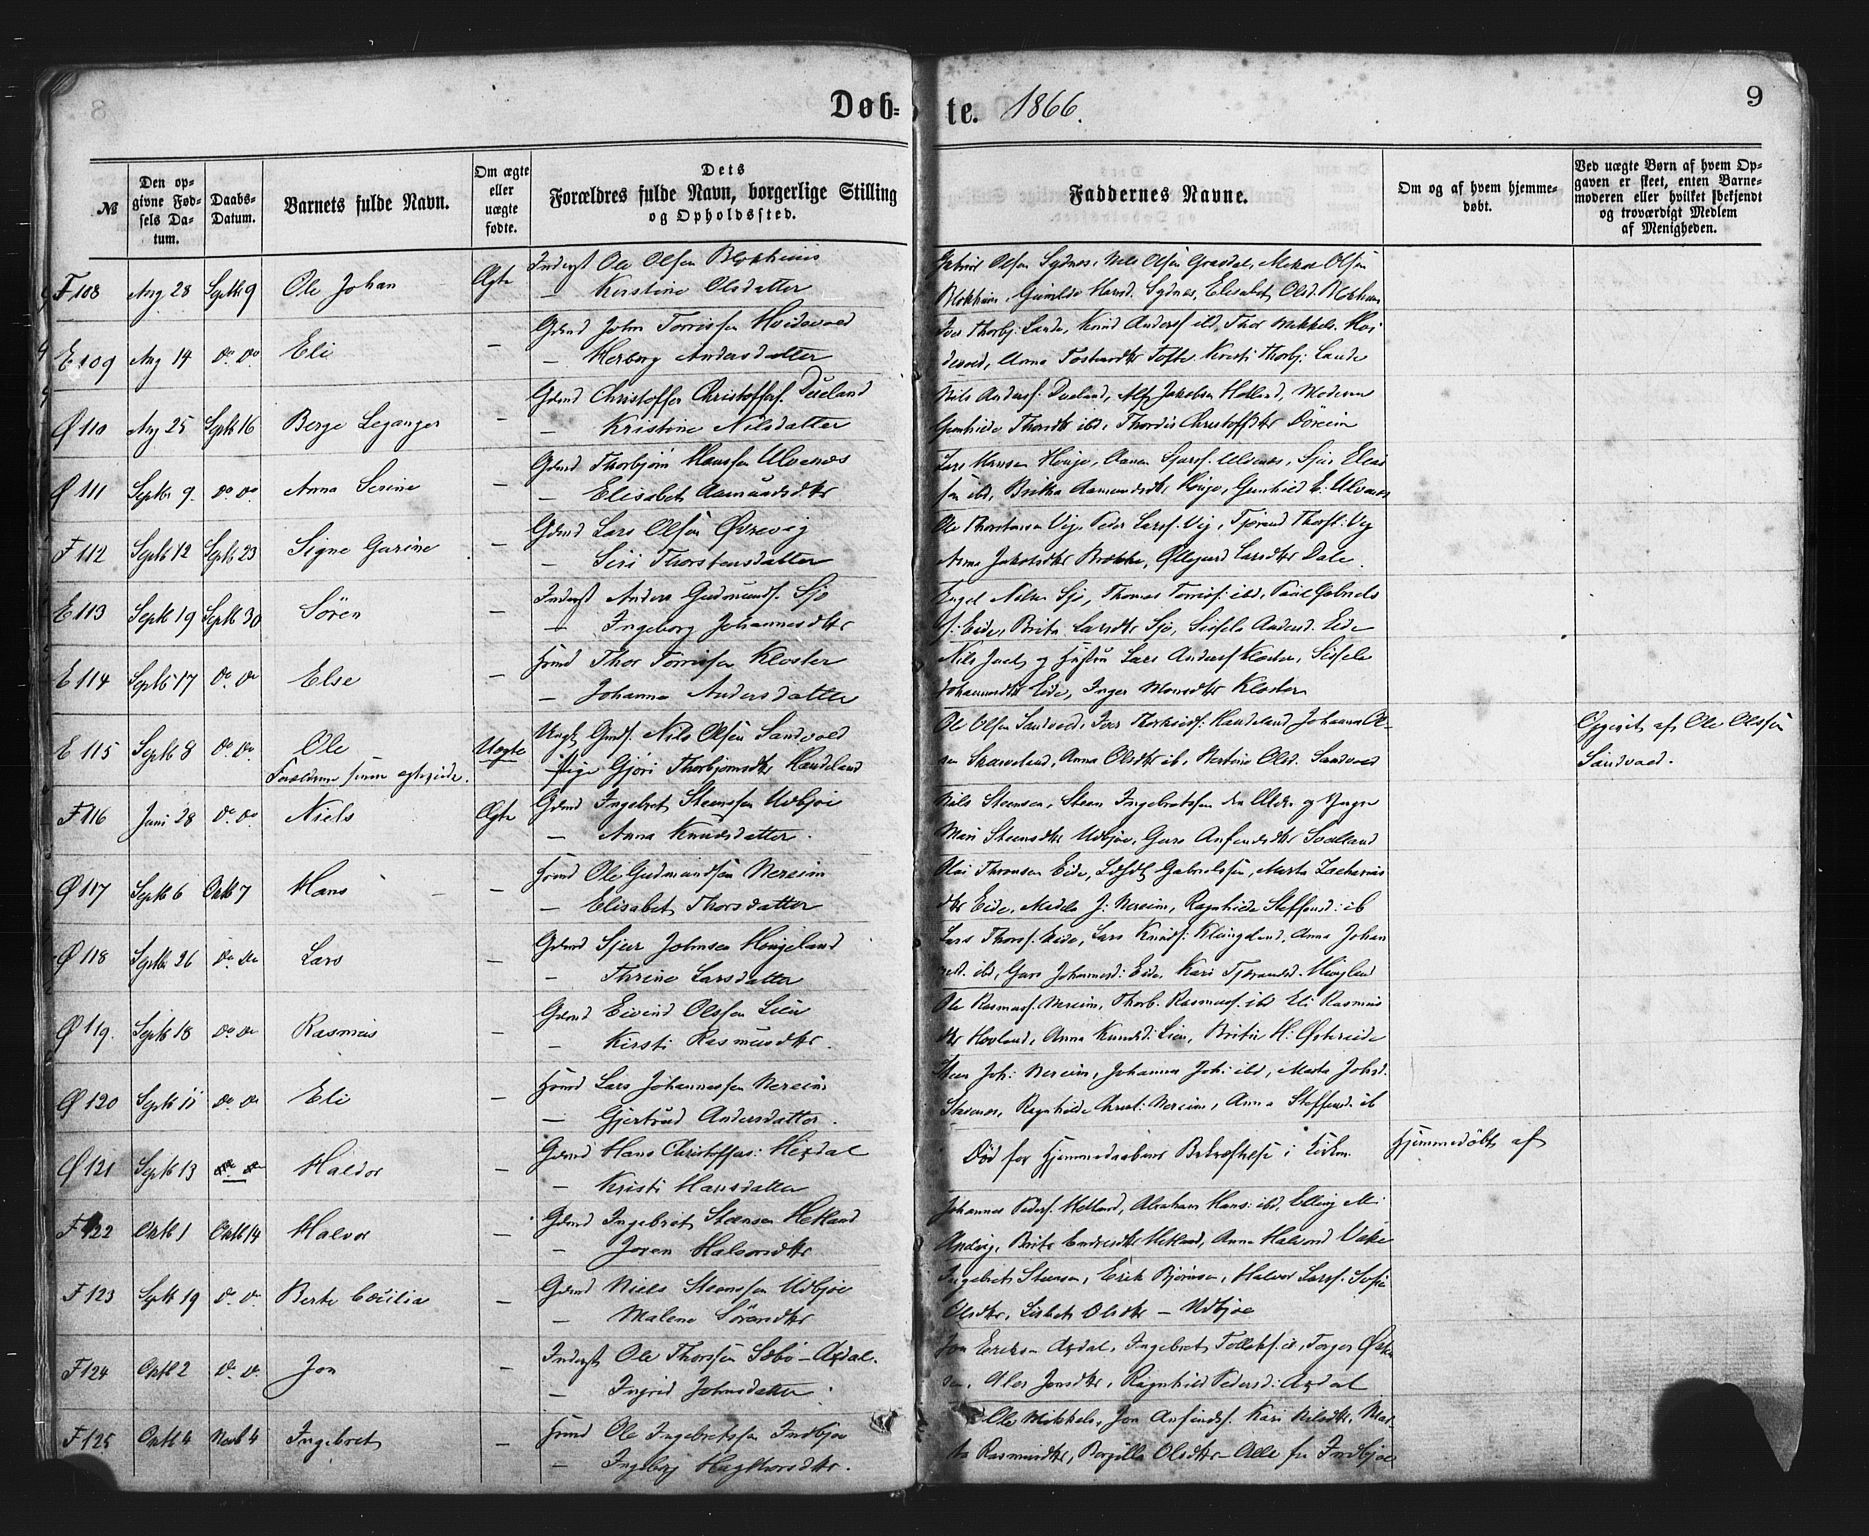 8
Døb= te. 1866. 9
№
Den opgivne Fødsels Datum.
Daabs-Datum.
Barnets fulde Navn.
Om ægte eller uægte fødte.
Dets Forældres fulde Navn, borgerlige Stilling og Opholdssted.
Faddernes Navne.
Om og af hvem hjemmedøbt.
Ved uægte Børn af hvem Opgaven er skeet, enten Barnemoderen eller hvilket bekjendt og troværdigt Medlem af Menigheden.
F 108 Aug 28 Septb 9 Ole Johan Ægte Inderst Ole Olsen Blokhuus
— Kirstine Olsdatter
Gabriel Olsen Sydnes, Nils Olsen
Blokhuus, Gunilde Hansd. Sydnes, Elisabet Olsd. Blokhuus
E 109 Aug 14 do do Eli — Gdmd John Torrissen
— Herborg Andersdatter
Iver Thorbj. Lande, Knud Anderss. ibd, Thor Mikkels.
Anna Tofte, Kirsti Thorbj. Lande
Ø 110 Aug 25 Septb 16 Berge Leganger — Gdmd Christoffer Christoffers. Dueland
— Kristine Nilsdatter
Nils Anders. Dueland, Alf Jakobsen Helland, Moderen
Gunhilde Thorsdtr ibd, Thordis Christoffdtr
Ø 111 Septbr 9. do do Anna Serine — Gdmd Thorbjörn Hansen Ulvenæs
— Elisabet Aamundsdtr
Lars Hansen Houge, Sjurs. Ulvenæs, Sjur Elias
sen ibd, Britha Aamundsdtr Houge, Gunhild E. Ulvenæs
F 112 Septb 12 Septb 23 Signe Garine — Gdmd Lars Olsen Øvrevig
— Siri Thorstensdatter
Ole Thorstensen Vig, Peder Larss. Vig, Tjerand Thorst. Vig
Anna Jakobsdtr Brekke, Øllegaard Larsdtr Dale.
E 113 Septb 19 Septb 30 Sören — Inderst Anders Gudmunds. Sjo
— Ingeborg Johannesdtr
Engel Nilsen Sjo, Thomas Torriss. ibd, Paul Gabriels
s. Eide, Brita Larsdtr Sjo, Sissela Andersd. Eide
E 114 Septb 17 do do Else — Huusmd Thor Torrissen Kloster
— Johanna Andersdatter
Nils Juel og Hustru Lars Anders. Kloster, Sissele
Johannesdtr Eide, Inger Monsdtr Kloster
E 115 Septb 8 do do Ole Uægte Ungk. Gmds. Nils Olsen Sandvoed
Forældrene siden ægteviede.
Pige Gjöri Thorbjornsdtr Handeland
Ole Olsen Sandvoed, Iver Handeland, Johannes Ol-
sen Skaaveland, Anna Olsdtr ib, Bertine Olsd. Sandvoed
Opgivet af Ole Olssen
Sandvoed.
F 116 Juni 28 do do Niels Ægte Gdmd Ingebret Steensen Udbjoe
— Anna Knudsdatter.
Nils Steensen, Steen Ingebretsen den Ældre og Yngre
Mari Steensdtr Udbjoe, Guro
Ø 117 Septb 6 Oktb 7 Hans — Huusmd Ole Gudmundsen Nereim
— Elisabet Thorsdatter
Eide, Gabrielsen, Marta Zacharias
dtr Eide, J. Nereim, Ragnhilde Steffensd. ib
Ø 118 Septbr 26 do do Lars — Gdmd Sjur Johnsen Hougeland
— Thrine Larsdatter
Lars Thorss. Eide, Lars Knuds. Anna Johan
nesd. ibd, Guro Johannesd. Eide, Kari Tjerandsd. Hougland
Ø 119. Septb 18 do do Rasmus — Gdmd Eivind Olssen Lien
— Kirsti Rasmusdtr.
Ole Rasmuss. Nereim, Thorb. Rasmuss. ibd Eli Rasmus
dtr Hovland, Anna Knudsd. Lien, Brita H. Östereide
Ø 120 Septb 11 do do Eli — Huusmd Lars Johannessen Nereim
— Gjertrud Andersdatter.
Steen Joh. Nereim, Johanna Joh. ibd, Marta Johsd.
Ragnhilde Christ. Nereim, Anna Steffensd. ib
Ø 121 Septb 13 Haldor — Gdmd Hans Christoffers.
— Kristi Hansdatter
Död før Hjemmedaabens Bekræftelse i Kirken. Hjemmedöbt af
F 122 Oktb 1 Oktb 14 Halvor — Gdmd Ingebret Steensen Hetland
— Joren Halvorsdtr
Johannes Peders. Hetland, Abraham Hans. ibd, Elling M.
Brita Endresdtr Hetland, Anna Halvorsd Vake
F 123 Septb 19 do do Berte Cecilia — Gdmd Niels Steenssen Udbjoe
— Malene Sörensdtr
Ingebret Steensen, Erik Bjørnsen, Halvor Larss. Sofie
Olsdtr, Lisbet Olsdtr — Udbjoe
F 124 Oktb 2 do do Jon — Inderst Ole Thorssen Sæbö-Axdal.
— Ingrid Johnsdatter.
Jon Eriksen Axdal, Ingebret Tollefs. ib, Torger
Jonsdtr, Ragnhild Pedersd. Axdal
F 125 Oktb 4 Novb 4 Ingebret — Huusmd Ole Ingebretssen Indbjoe
— Ingeborg Haktorsdtr.
Ole Mikkels., Jon Kari Nilsdtr, Mar-
ta Rasmusdtr, Borgilla Olsdtr — Alle fra Indbjoe